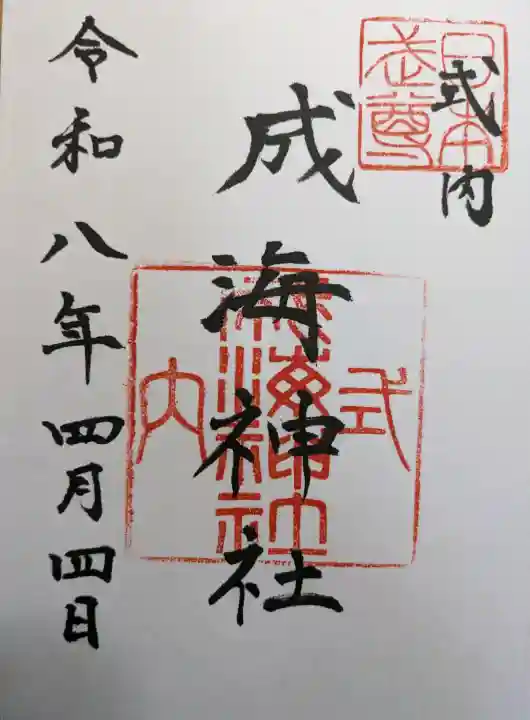 式内
日本武尊
成海神社
式内
成海神社
令和八年四月四日